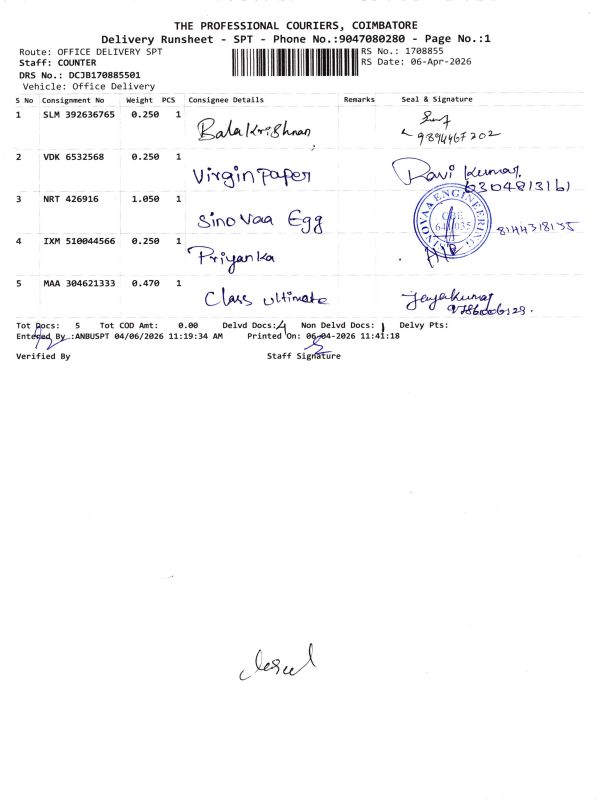 THE PROFESSIONAL COURIERS, COIMBATORE
Delivery Runsheet - SPT - Phone No.:9047080280 - Page No.:1
Route: OFFICE DELIVERY SPT RS No.: 1708855
Staff: COUNTER RS Date: 06-Apr-2026
DRS No.: DCJB170885501
Vehicle: Office Delivery
S No Consignment No Weight PCS Consignee Details Remarks Seal & Signature
1 SLM 392636765 0.250 1 Balakrishnan
9894467202
2 VDK 6532568 0.250 1 Virgin Paper Ravi Kumar
6304813161
3 NRT 426916 1.050 1 Sino Vaa Egg
CBE
641 035
8144318135
4 IXM 510044566 0.250 1 Priyanka
5 MAA 304621333 0.470 1 Class ultimate Jeyakumar
Tot Docs: 5 Tot COD Amt: 0.00 Delvd Docs: 4 Non Delvd Docs: 1 Delvy Pts:
Entered By :ANBUSPT 04/06/2026 11:19:34 AM Printed On: 06-04-2026 11:41:18
Verified By Staff Signature